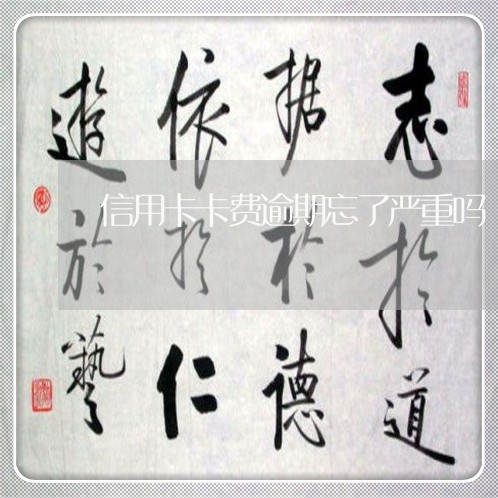 志於道
据於德
依於仁
遊於藝
信用卡卡费逾期忘了严重吗